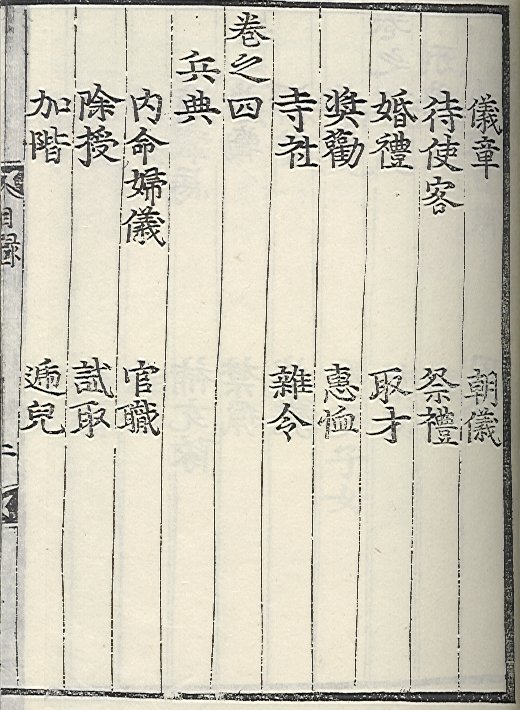 儀章 朝儀
待使客 祭禮
婚禮 取才
奬勸 惠恤
寺社 雜令
卷之四
兵典
內命婦儀 官職
除授 試取
加階 遞兒
目錄
二